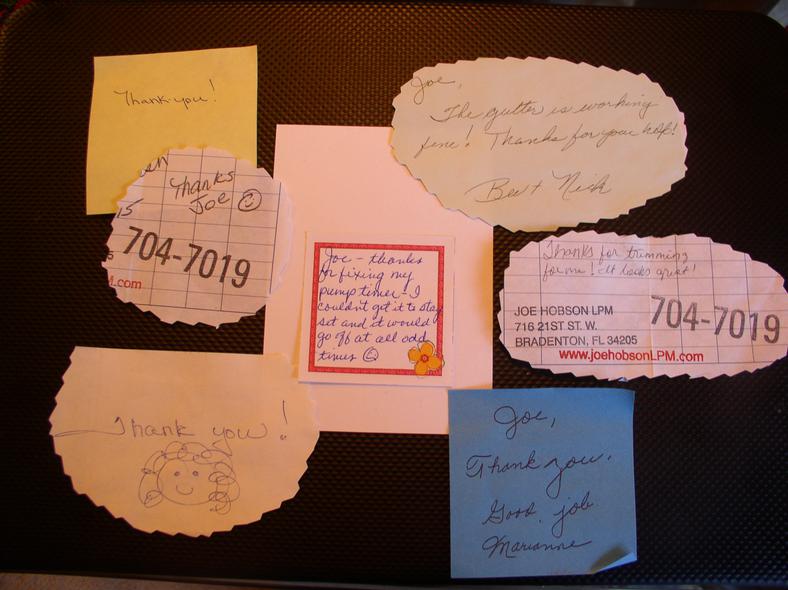 Thank you!
Joe,
The gutter is working
fine! Thanks for your help!
Bev + Nick
Thanks
Joe
15
704-7019
.com
Joe - thanks
for fixing my
pump timer - I
couldn't get it to stay
set and it would
go off at all odd
times
Thanks for trimming
for me! It looks great!
JOE HOBSON LPM
704-7019
716 21ST ST. W.
BRADENTON, FL 34205
www.joehobsonLPM.com
Thank you!
Joe,
Thank you.
Good job
Marianne